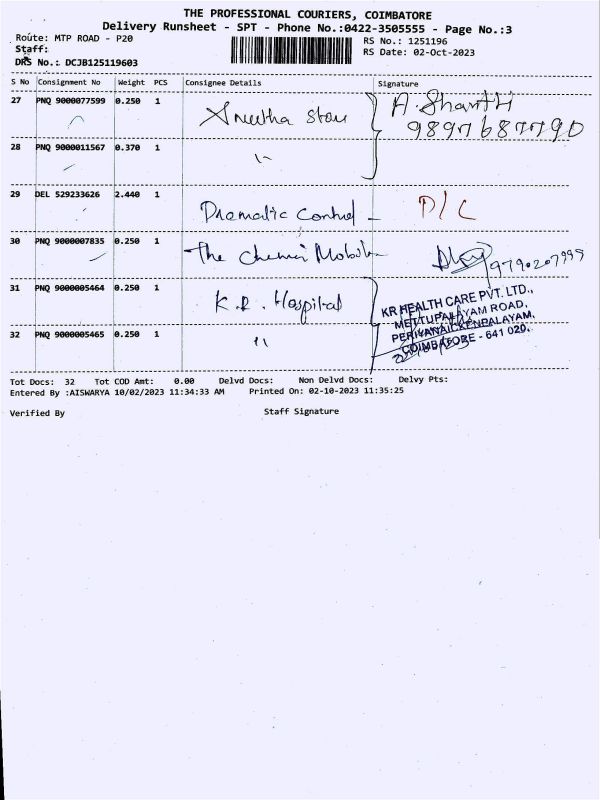 THE PROFESSIONAL COURIERS, COIMBATORE
Delivery Runsheet - SPT - Phone No.:0422-3505555 - Page No.:3
Route: MTP ROAD - P20 RS No.: 1251196
Staff: RS Date: 02-Oct-2023
DRS No.: DCJB125119603
S No Consignment No Weight PCS Consignee Details Signature
27 PNQ 9000077599 0.250 1 A. Shanthi
9897687790
28 PNQ 9000011567 0.370 1
29 DEL 529233626 2.440 1 D/C
30 PNQ 9000007835 0.250 1 The Chennai Mobile 9790207999
31 PNQ 9000005464 0.250 1 K.R. Hospital
KR HEALTH CARE PVT. LTD.,
METTUPALAYAM ROAD,
PERIYANAICKENPALAYAM,
COIMBATORE - 641 020.
32 PNQ 9000005465 0.250 1 11
Tot Docs: 32 Tot COD Amt: 0.00 Delvd Docs: Non Delvd Docs: Delvy Pts:
Entered By :AISWARYA 10/02/2023 11:34:33 AM Printed On: 02-10-2023 11:35:25
Verified By Staff Signature